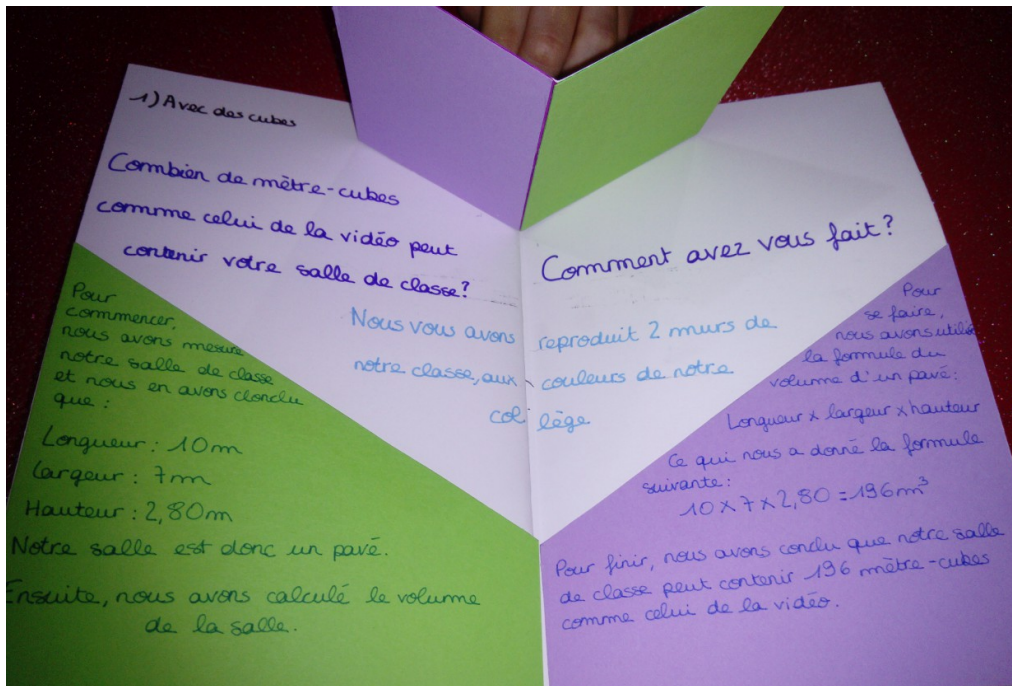 1) Avec des cubes
Combien de mètre-cubes
comme celui de la vidéo peut
contenir votre salle de classe?
Comment avez vous fait?
Nous vous avons reproduit 2 murs de
notre classe, aux couleurs de notre
col lège
Pour
commencer,
nous avons mesuré
notre salle de classe
et nous en avons clonclu
que :
Longueur : 10m
Largeur : 7m
Hauteur : 2,80m
Notre salle est donc un pavé.
Ensuite, nous avons calculé le volume
de la salle.
Pour
se faire,
nous avons utilisé
la formule du
volume d'un pavé:
Longueur x largeur x hauteur
Ce qui nous a donné la formule
suivante:
10 x 7 x 2,80 = 196m³
Pour finir, nous avons conclu que notre salle
de classe peut contenir 196 mètre-cubes
comme celui de la vidéo.